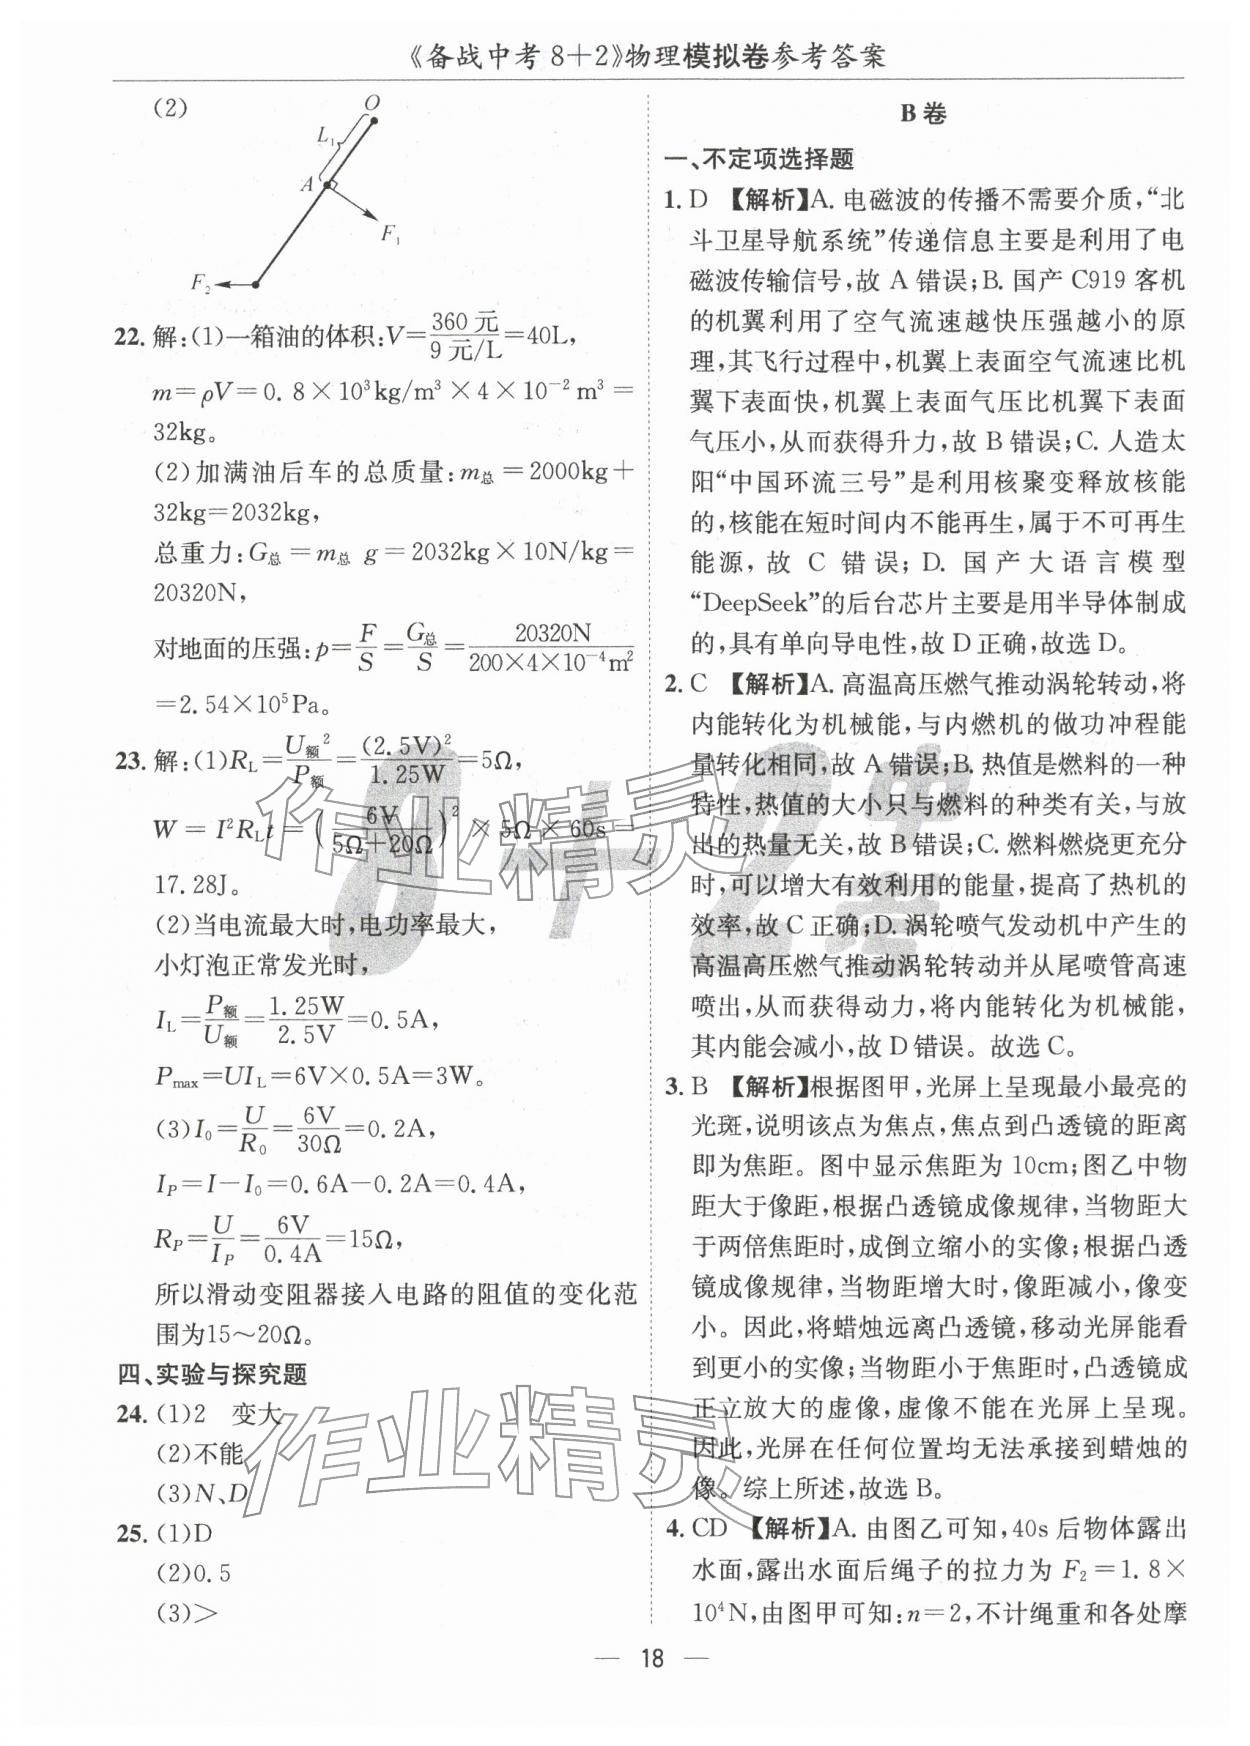 《备战中考 8＋2》物理模拟卷参考答案
(2)
O
L₁
A
F₁
F₂
22. 解:(1)一箱油的体积:V=360 元/9 元/L=40L,
m=ρV=0. 8×10³kg/m³×4×10⁻² m³=
32kg。
(2)加满油后车的总质量:m总=2000kg+
32kg=2032kg,
总重力:G总=m总 g=2032kg×10N/kg=
20320N,
对地面的压强:p=F/S=G总/S=20320N/200×4×10⁻⁴m²
=2.54×10⁵Pa。
23. 解:(1)R_L=U额²/P额=(2.5V)²/1.25W=5Ω,
W=I²R_Lt=(6V/5Ω+20Ω)²×5Ω×60s=
17.28J。
(2)当电流最大时,电功率最大,
小灯泡正常发光时,
I_L=P额/U额=1.25W/2.5V=0.5A,
P_max=UI_L=6V×0.5A=3W。
(3)I₀=U/R₀=6V/30Ω=0.2A,
I_P=I−I₀=0.6A−0.2A=0.4A,
R_P=U/I_P=6V/0.4A=15Ω,
所以滑动变阻器接入电路的阻值的变化范
围为15～20Ω。
四、实验与探究题
24. (1)2 变大
(2)不能
(3)N、D
25. (1)D
(2)0.5
(3)＞
B 卷
一、不定项选择题
1. D 【解析】A. 电磁波的传播不需要介质,“北
斗卫星导航系统”传递信息主要是利用了电
磁波传输信号,故 A 错误;B. 国产 C919 客机
的机翼利用了空气流速越快压强越小的原
理,其飞行过程中,机翼上表面空气流速比机
翼下表面快,机翼上表面气压比机翼下表面
气压小,从而获得升力,故 B 错误;C. 人造太
阳“中国环流三号”是利用核聚变释放核能
的,核能在短时间内不能再生,属于不可再生
能源,故 C 错误;D. 国产大语言模型
“DeepSeek”的后台芯片主要是用半导体制成
的,具有单向导电性,故 D 正确,故选 D。
2. C 【解析】A. 高温高压燃气推动涡轮转动,将
内能转化为机械能,与内燃机的做功冲程能
量转化相同,故 A 错误;B. 热值是燃料的一种
特性,热值的大小只与燃料的种类有关,与放
出的热量无关,故 B 错误;C. 燃料燃烧更充分
时,可以增大有效利用的能量,提高了热机的
效率,故 C 正确;D. 涡轮喷气发动机中产生的
高温高压燃气推动涡轮转动并从尾喷管高速
喷出,从而获得动力,将内能转化为机械能,
其内能会减小,故 D 错误。故选 C。
3. B 【解析】根据图甲,光屏上呈现最小最亮的
光斑,说明该点为焦点,焦点到凸透镜的距离
即为焦距。图中显示焦距为 10cm;图乙中物
距大于像距,根据凸透镜成像规律,当物距大
于两倍焦距时,成倒立缩小的实像;根据凸透
镜成像规律,当物距增大时,像距减小,像变
小。因此,将蜡烛远离凸透镜,移动光屏能看
到更小的实像;当物距小于焦距时,凸透镜成
正立放大的虚像,虚像不能在光屏上呈现。
因此,光屏在任何位置均无法承接到蜡烛的
像。综上所述,故选 B。
4. CD 【解析】A. 由图乙可知,40s 后物体露出
水面,露出水面后绳子的拉力为 F₂=1. 8×
10⁴N,由图甲可知:n=2,不计绳重和各处摩
— 18 —
8+2 中考
作业精灵
作业精灵